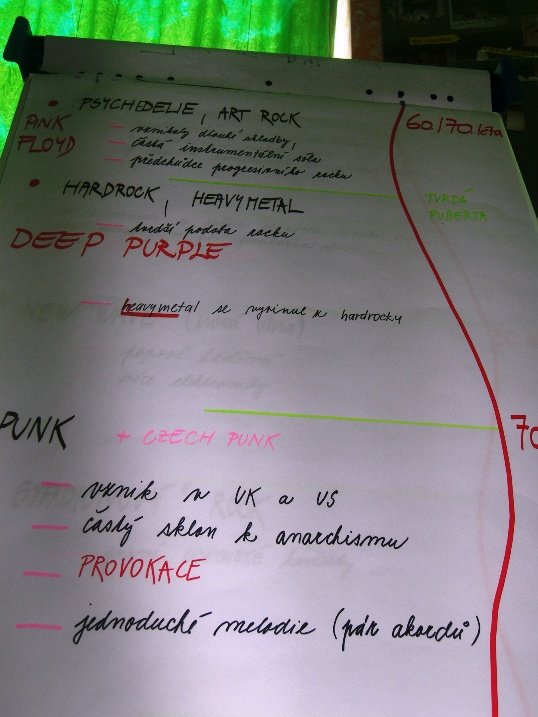 PSYCHEDELIE, ART ROCK
60./70. léta
PINK FLOYD
vznikaly dlouhé skladby,
častá instrumentální sóla
předchůdce progresivního rocku
HARDROCK, HEAVYMETAL
TVRDÁ
PUBERTA
tvrdší podoba rocku
DEEP PURPLE
heavymetal se vyvinul z hardrocku
PUNK + CZECH PUNK
70
vznik v UK a US
častý sklon k anarchismu
PROVOKACE
jednoduché melodie (pár akordů)